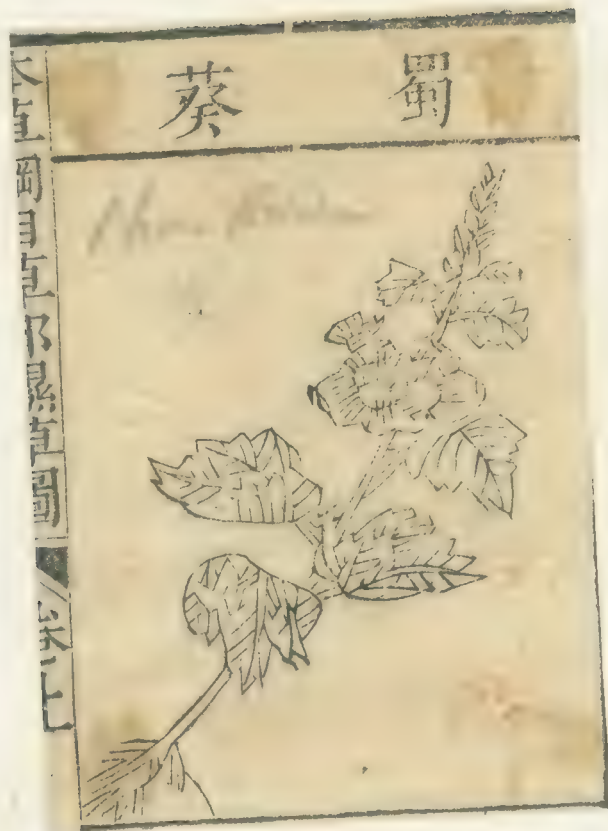 蜀葵
本草綱目草部濕草圖 卷上